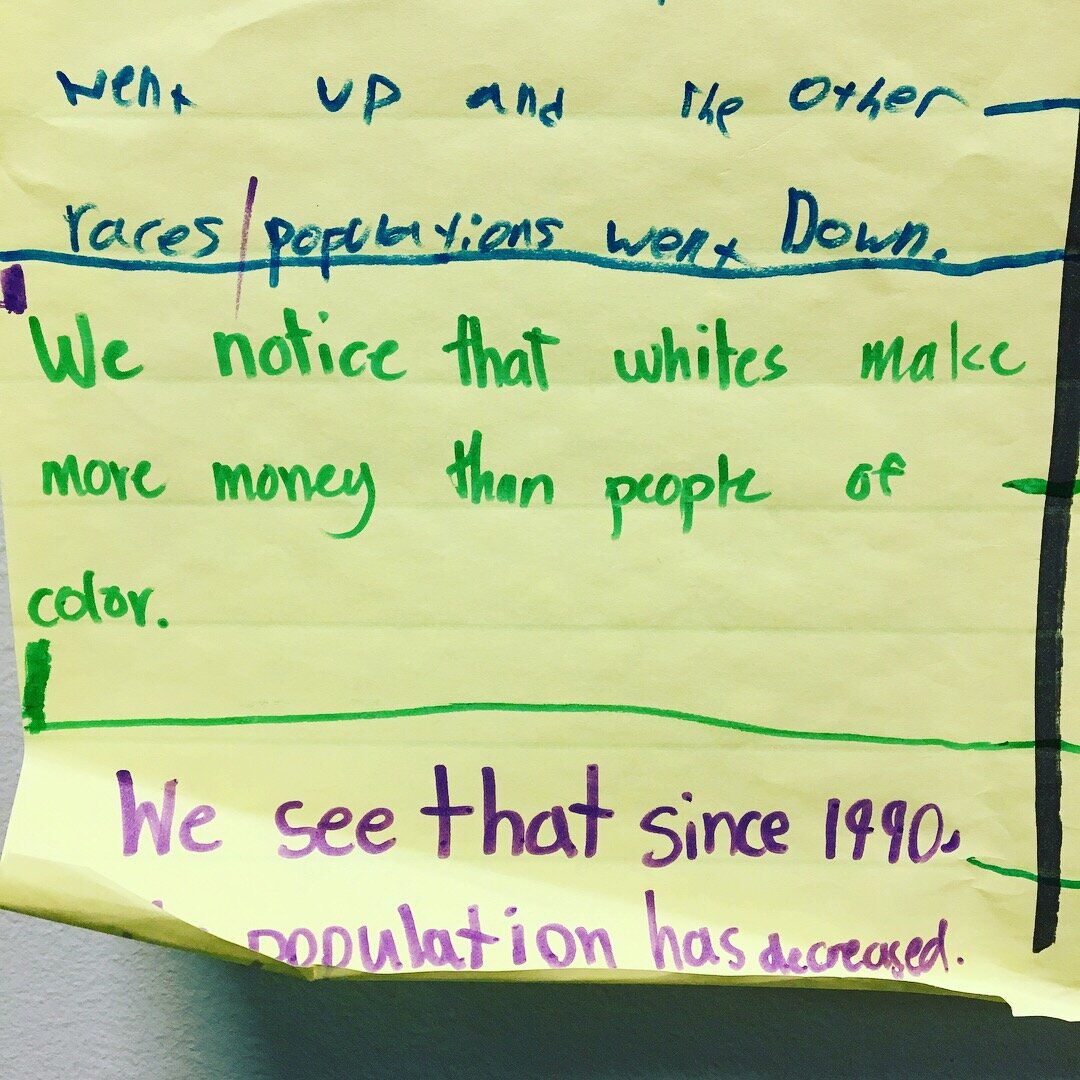 went up and the other
races/populations went Down.
We notice that whites make
more money than people of
color.
We see that since 1990,
population has decreased.